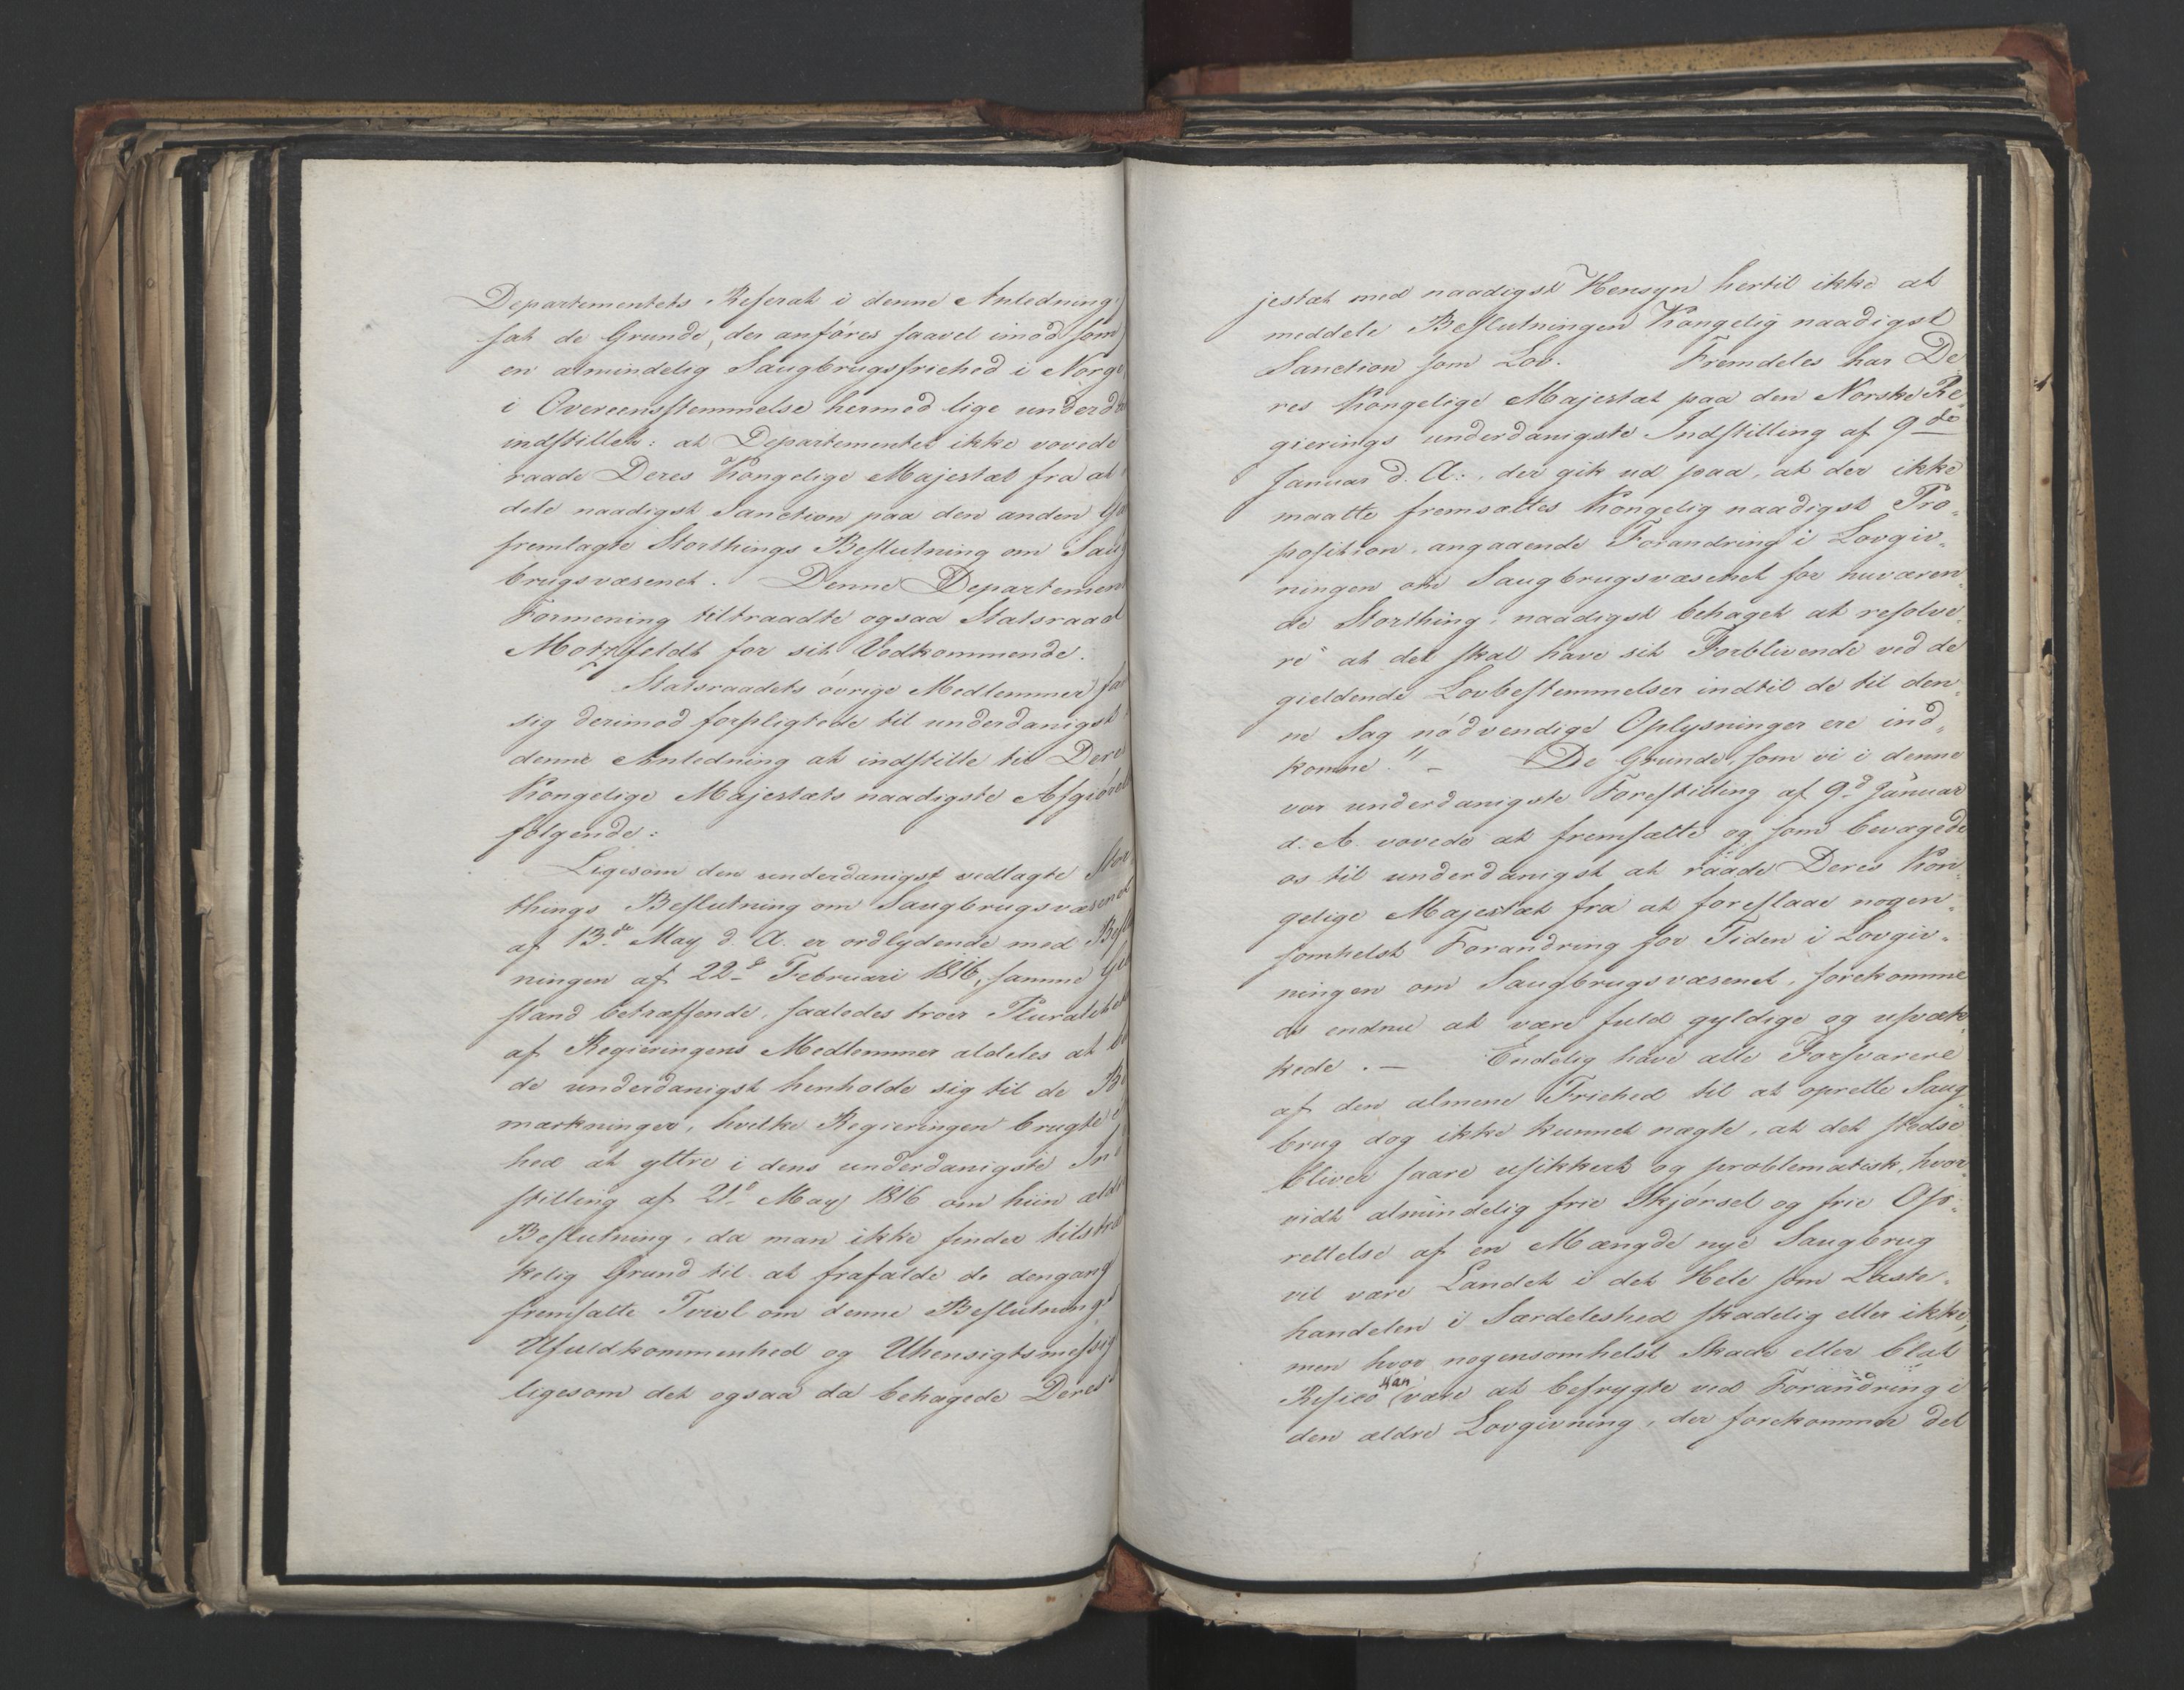 Departementets Referat i denne Anledning
sat de Grunde, der anføres saavel imod som
en almindelig Saugbrugsfriehed i Norge,
i Overeensstemmelse hermed lige underd
indstillet: at Departementet ikke vovede
raade Deres Kongelige Majestæt fra at
dele naadigst Sanction paa den anden
fremlagte Storthings Beslutning om Saug
brugsvæsenet. Denne Departement
Formening tiltraadte ogsaa Statsraad
Motzfeldt for sit Vedkommende.
Statsraadets øvrige Medlemmer
sig derimod forpligtede til underdanigst
denne Anledning at indstille til Deres
Kongelige Majestæts naadigste Afgiørel
følgende:
Ligesom den underdanigst vedlagte Stor
things Beslutning om Saugbrugsvæsenet
af 13de May d. A. er ordlydende med Beslu
ningen af 22de Februari 1816, samme
stand betræffende, saaledes troer Pluralitet
af Regieringens Medlemmer aldeles at
de underdanigst henholde sig til de Be
mærkninger, hvilke Regieringen brugte
hed at yttre i dens underdanigste In
stilling af 21de May 1816 om hiin ældre
Beslutning, da man ikke finder tilstræ
kelig Grund til at frafalde de dengang
fremsatte Tvivl om denne Beslutnings
Ufuldkommenhed og Uhensigtsmessig
ligesom det ogsaa da behagede Deres
jestæt med naadigst Hensyn hertil ikke at
meddele Beslutningen Kongelig naadigst
Sanction som Lov. Fremdeles har De
res Kongelige Majestæt paa den Norske Re„
gierings underdanigste Indstilling af 9de
Januar d. A:, der gik ud paa, at der ikke
maatte fremsættes Kongelig naadigst Pro„
position, angaaende Forandring i Lovgiv„
ningen om Saugbrugsvæsenet for nuværen„
de Storthing, naadigst behaget at resolve„
re "at det skal have sit Forblivende ved de
gieldende Lovbestemmelser indtil de til den„
ne Sag nødvendige Oplysninger ere ind„
komne." – De Grunde, som vi i denne
vor underdanigste Forestilling af 9de Januar
d. A. vovede at fremsætte og som bevægede
os til underdanigst at raade Deres Kon„
gelige Majestæt fra at foreslaae nogen„
somhelst Forandring for Tiden i Lovgiv„
ningen om Saugbrugsvæsenet, forekomme
os endnu at være fuld gyldige og usvæk„
kede. – Endelig have alle Forsvarere
af den almene Friehed til at oprette Saug„
brug dog ikke kunnet nægte, at det stedse
bliver saare usikkert og problematisk, hvor„
vidt almindelig frie Skjørsel og frie Op„
rettelse af en Mængde nye Saugbrug
vil være Landet i det Hele som Laste„
handelen i Særdeleshed skadelig eller ikke,
men hvor nogensomhelst Skade eller blot
Risico kan være at befrygte ved Forandring i
den ældre Lovgivning, der forekommer det